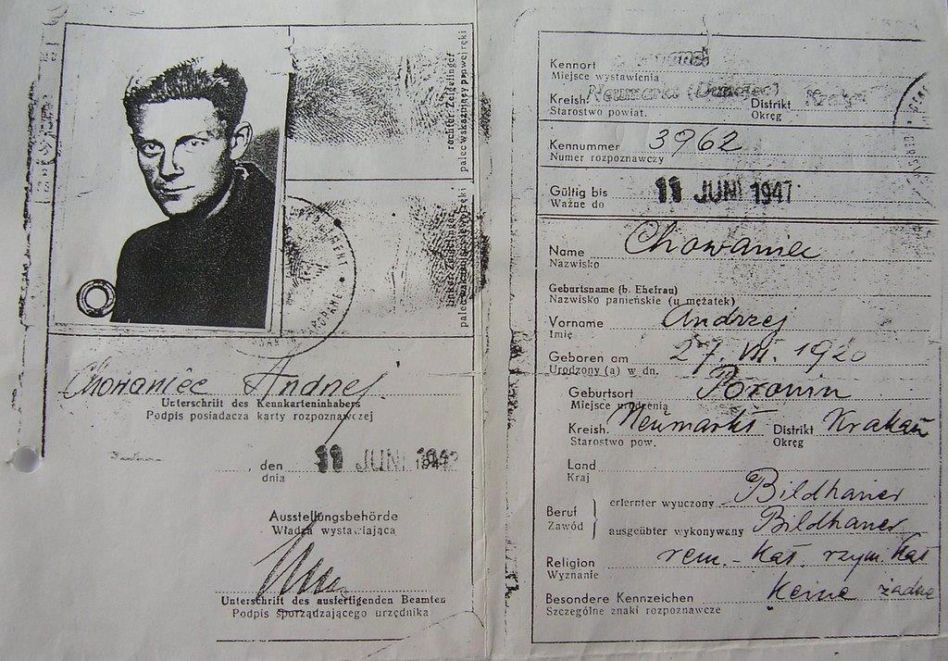 rechter Zeigefinger
palec wskazujący prawej ręki
linker Zeigefinger
palec wskazujący lewej ręki
Chowaniec Andrzej
Unterschrift des Kennkarteninhabers
Podpis posiadacza karty rozpoznawczej
, den 11 JUNI 1942
dnia
Ausstellungsbehörde
Władza wystawiająca
Unterschrift des ausfertigenden Beamten
Podpis sporządzającego urzędnika
Kennort
Miejsce wystawienia
Kreish. Neumarkt (Dunajec) Distrikt Krakau
Starostwo powiat. Okręg
Kennummer 3962
Numer rozpoznawczy
Gültig bis 11 JUNI 1947
Ważne do
Name Chowaniec
Nazwisko
Geburtsname (b. Ehefrau)
Nazwisko panieńskie (u mężatek)
Vorname Andrzej
Imię
Geboren am 27. VII. 1920
Urodzony (a) w dn.
Geburtsort Poronin
Miejsce urodzenia
Kreish. Neumarkt Distrikt Krakau
Starostwo pow. Okręg
Land
Kraj
Beruf erlernter wyuczony Bildhauer
Zawód ausgeübter wykonywany Bildhauer
Religion röm.-kat. rzym. kat
Wyznanie
Besondere Kennzeichen keine żadne
Szczególne znaki rozpoznawcze